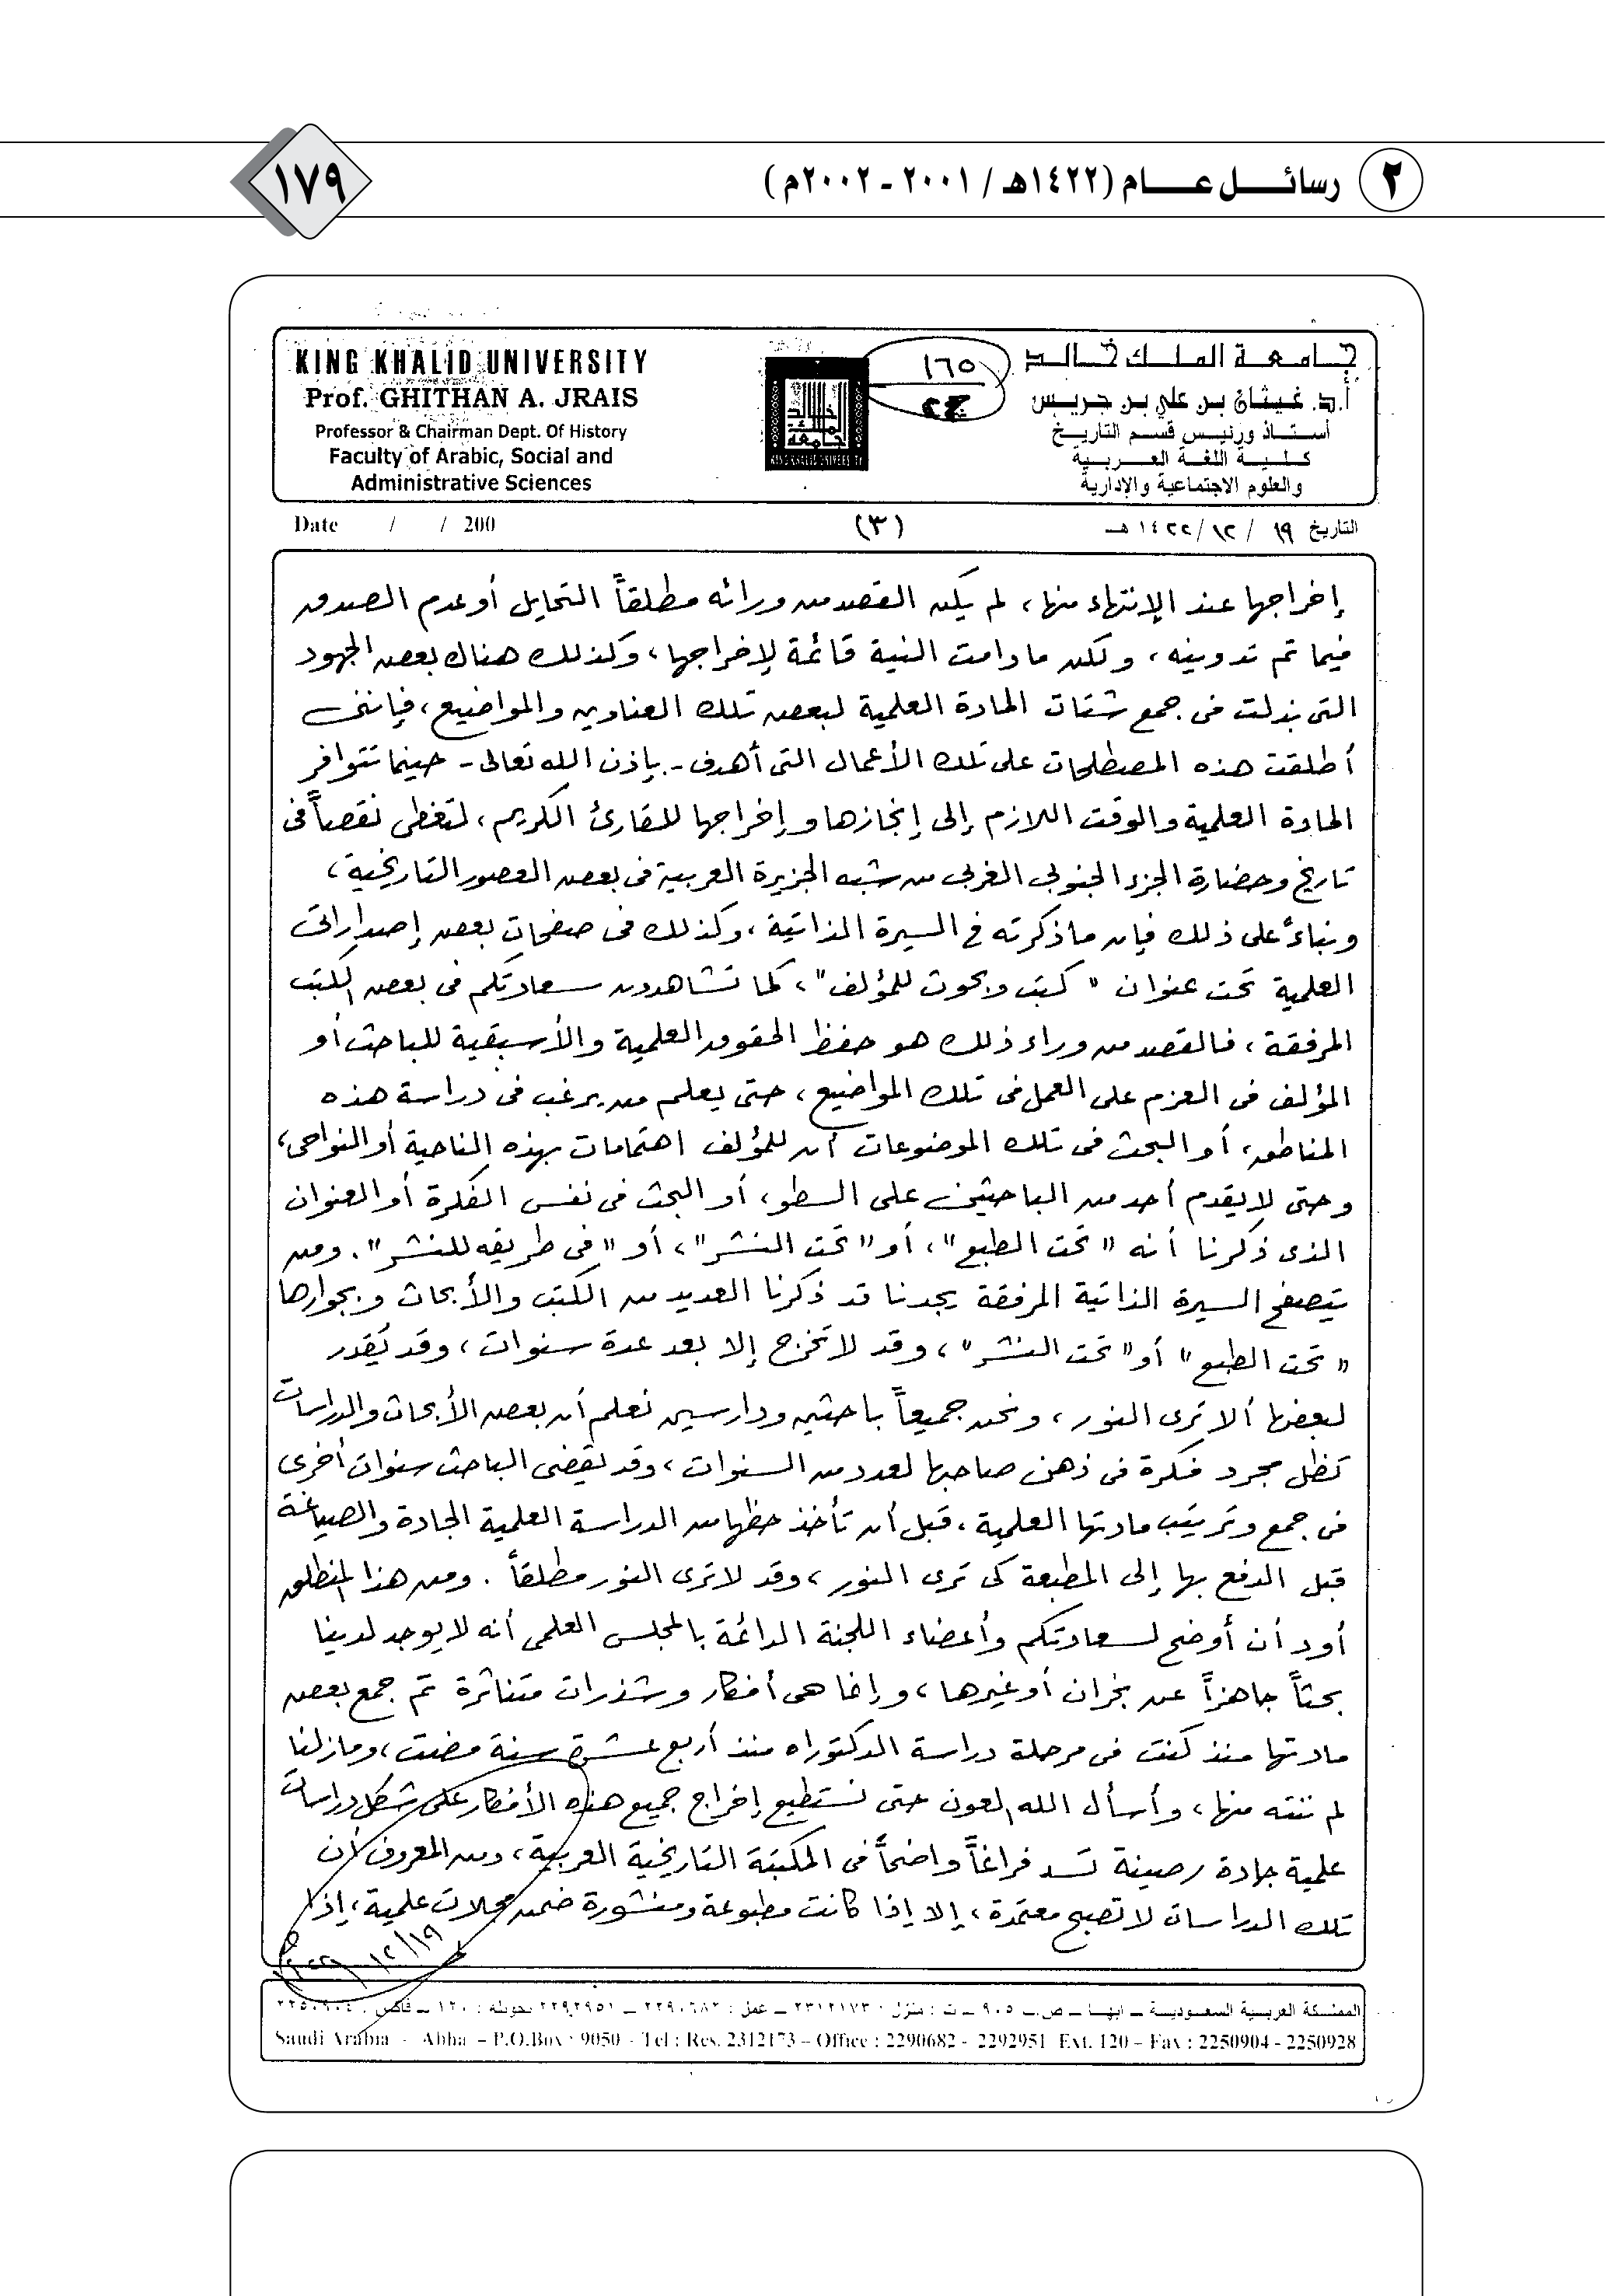 ٢ رسائل عام (١٤٢٢هـ / ٢٠٠١ - ٢٠٠٢م)
١٧٩
جامعة الملك خالد
أ.د. غيثان بن علي بن جريس
أستاذ ورئيس قسم التاريخ
كلية اللغة العربية
والعلوم الاجتماعية والإدارية
١٦٥
KING KHALID UNIVERSITY
Prof. GHITHAN A. JRAIS
Professor & Chairman Dept. Of History
Faculty of Arabic, Social and
Administrative Sciences
التاريخ ١٩ / ١٢ / ١٤٢٢ هـ
(٣)
Date / / 200
إخراجها عند الإنتهاء منها، لم يكن القصد من ورائه مطلقاً التحايل أو عدم الصدق
فيما تم تدوينه، ولكن مادامت النية قائمة لإخراجها، وكذلك هناك بعض الجهود
التى بذلت فى جمع شتات المادة العلمية لبعض تلك العناوين والمواضيع، فإننى
أطلقت هذه المصطلحات على تلك الأعمال التى أهدف - بإذن الله تعالى - حينما تتوافر
المادة العلمية والوقت اللازم إلى إنجازها وإخراجها للقارئ الكريم، لتغطى نقصاً فى
تاريخ وحضارة الجزء الجنوبى الغربى من شبه الجزيرة العربية فى بعض العصور التاريخية،
وبناءً على ذلك فإن ما ذكرته فى السيرة الذاتية، وكذلك فى صفحات بعض إصداراتى
العلمية تحت عنوان " كتب وبحوث للمؤلف"، كما تشاهدون سعادتكم فى بعض الكتب
المرفقة، فالقصد من وراء ذلك هو حفظ الحقوق العلمية والأسبقية للباحث أو
المؤلف فى العزم على العمل فى تلك المواضيع، حتى يعلم من يرغب فى دراسة هذه
المناطق، أو البحث فى تلك الموضوعات أن للمؤلف اهتمامات بهذه الناحية أو النواحى،
وحتى لا يقدم أحد من الباحثين على السطو، أو البحث فى نفس الفكرة أو العنوان
الذى ذكرنا أنه "تحت الطبع"، أو "تحت النشر"، أو "فى طريقه للنشر". ومن
يتصفح السيرة الذاتية المرفقة يجدنا قد ذكرنا العديد من الكتب والأبحاث وبجوارها
"تحت الطبع" أو "تحت النشر"، وقد لا تخرج إلا بعد عدة سنوات، وقد يُقدر
لبعضها ألا ترى النور، ونحن جميعاً باحثين ودارسين نعلم أن بعض الأبحاث والدراسات
تظل مجرد فكرة فى ذهن صاحبها لعدد من السنوات، وقد يقضى الباحث سنوات أخرى
فى جمع وترتيب مادتها العلمية، قبل أن تأخذ حظها من الدراسة العلمية الجادة والصياغة
قبل الدفع بها إلى المطبعة كى ترى النور، وقد لا ترى النور مطلقاً. ومن هذا المنطلق
أود أن أوضح لسعادتكم وأعضاء اللجنة الدائمة بالمجلس العلمى أنه لا يوجد لدينا
بحثاً جاهزاً عن نجران أو غيرها، وإنما هى أفكار وشذرات متناثرة تم جمع بعض
مادتها منذ كنت فى مرحلة دراسة الدكتوراه منذ أربع عشرة سنة مضت، ومازلنا
لم ننته منها، وأسأل الله العون حتى نستطيع إخراج جميع هذه الأفكار على شكل دراسات
علمية جادة رصينة تسد فراغاً واضحاً فى المكتبة التاريخية العربية، ومن المعروف أن
تلك الدراسات لا تصبح معتمدة، إلا إذا كانت مطبوعة ومنشورة ضمن مجلات علمية، إذا
١٢/١٩
المملكة العربية السعودية – ابها – ص.ب ٩٠٥ – ت : منزل : ٢٣١٢١٧٣ – عمل : ٢٢٩٠٦٨٢ – ٢٢٩٢٩٥١ تحويلة : ١٢٠ – فاكس : ٢٢٥٠٩٠٤
Saudi Arabia - Abha – P.O.Box : 9050 - Tel : Res. 2312173 – Office : 2290682 - 2292951 Ext. 120 – Fax : 2250904 - 2250928